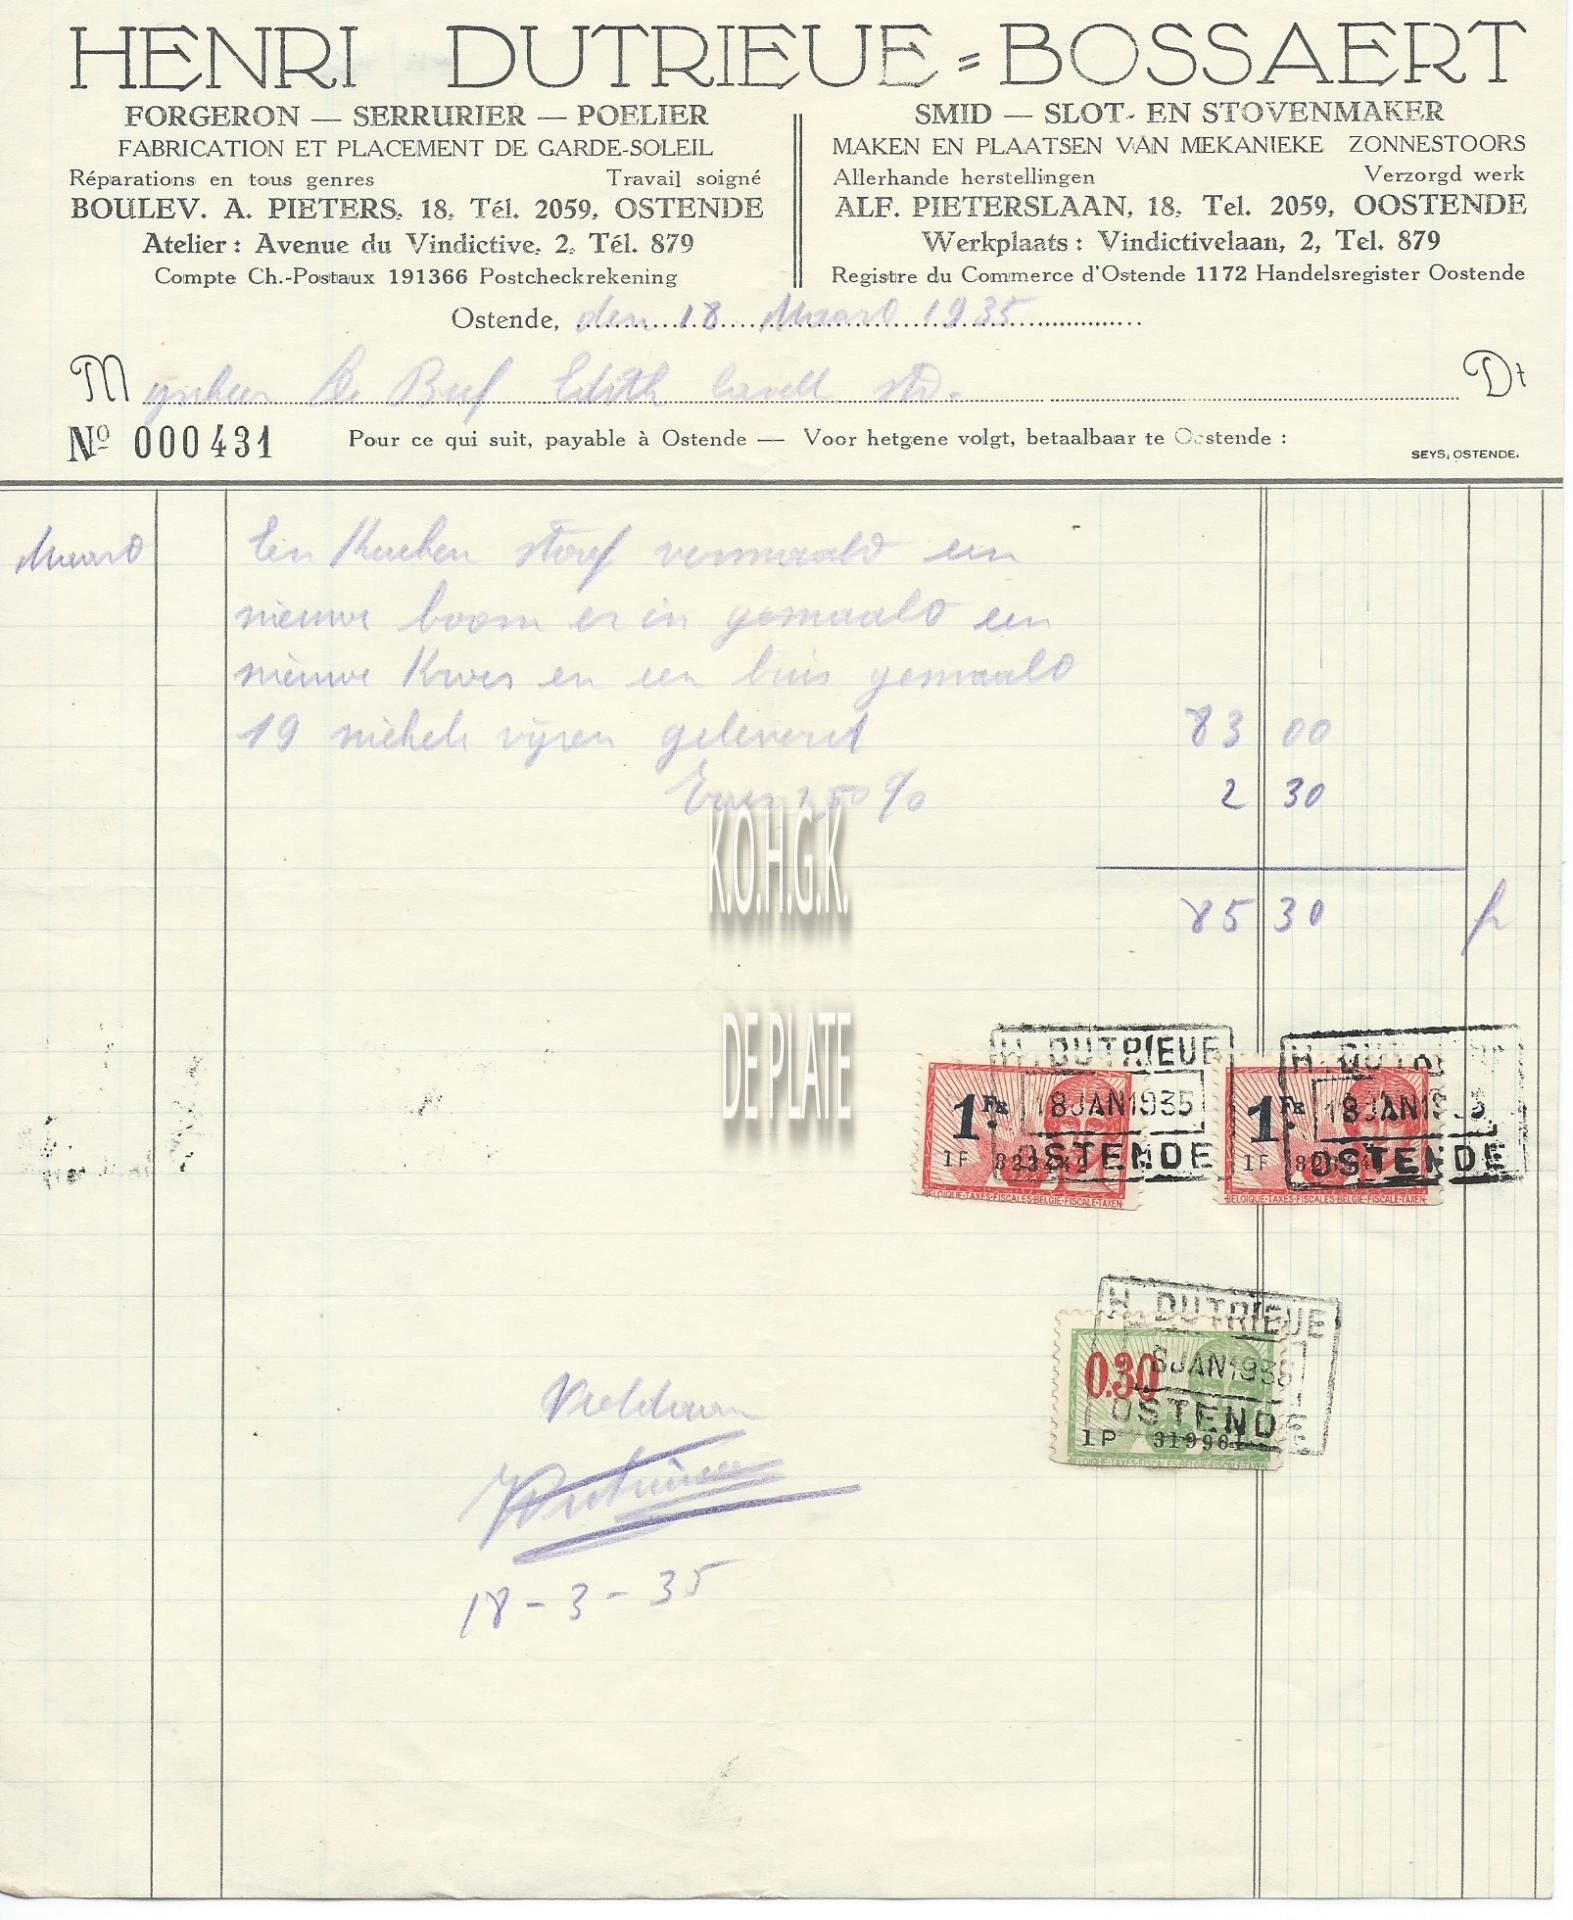 HENRI DUTRIEUE = BOSSAERT
FORGERON — SERRURIER — POELIER
FABRICATION ET PLACEMENT DE GARDE-SOLEIL
Réparations en tous genres Travail soigné
BOULEV. A. PIETERS, 18, Tél. 2059, OSTENDE
Atelier : Avenue du Vindictive, 2, Tél. 879
Compte Ch.-Postaux 191366 Postcheckrekening
SMID — SLOT- EN STOVENMAKER
MAKEN EN PLAATSEN VAN MEKANIEKE ZONNESTOORS
Allerhande herstellingen Verzorgd werk
ALF. PIETERSLAAN, 18, Tel. 2059, OOSTENDE
Werkplaats : Vindictivelaan, 2, Tel. 879
Registre du Commerce d'Ostende 1172 Handelsregister Oostende
Ostende, den 18 Maard 1935
Mynheer De Buf Edith Cavell std. Dt
No 000431 Pour ce qui suit, payable à Ostende — Voor hetgene volgt, betaalbaar te Oostende :
SEYS, OSTENDE.
Maard Een Keuken stoof vermaakd een
nieuwe boom er in gemaakd een
nieuwe en een buis gemaakd
19 nickels vyzen geleverd 83 00
2,50 % 2 30
85 30 fr
K.O.H.G.K.
DE PLATE
H. DUTRIEUE
18 JAN 1935
OSTENDE
1 FR.
1F
BELGIQUE-TAXES-FISCALES-BELGIE-FISCALE-TAXEN
H. DUTRIEUE
18 JAN 1935
OSTENDE
1 FR.
1F
BELGIQUE-TAXES-FISCALES-BELGIE-FISCALE-TAXEN
H. DUTRIEUE
8 JAN 1935
OSTENDE
0.30
1P 319961
BELGIQUE-TAXES-FISCALES-BELGIE-FISCALE-TAXEN
Voldaan
Dutrieue
18-3-35